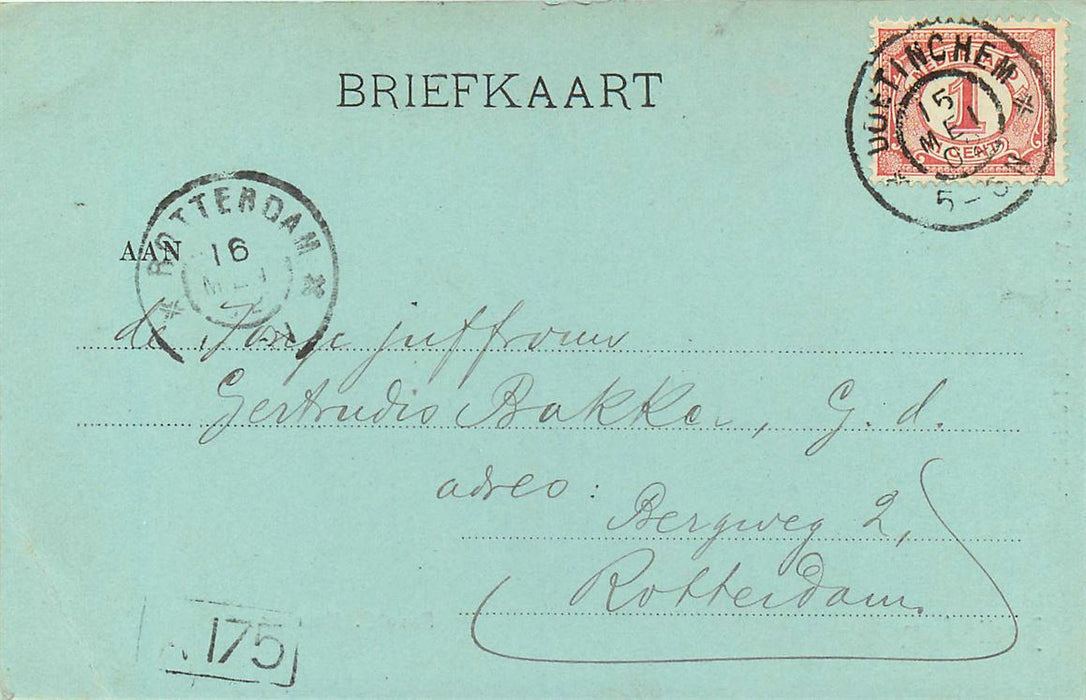 BRIEFKAART
DOETINCHEM
NEDERLAND
1
CENT
15
MEI
5-6N
ROTTERDAM
16
MEI
AAN
de Jonge juffrouw
Gertrudis Bakker, G. d.
adres:
Bergweg 2,
Rotterdam.
175